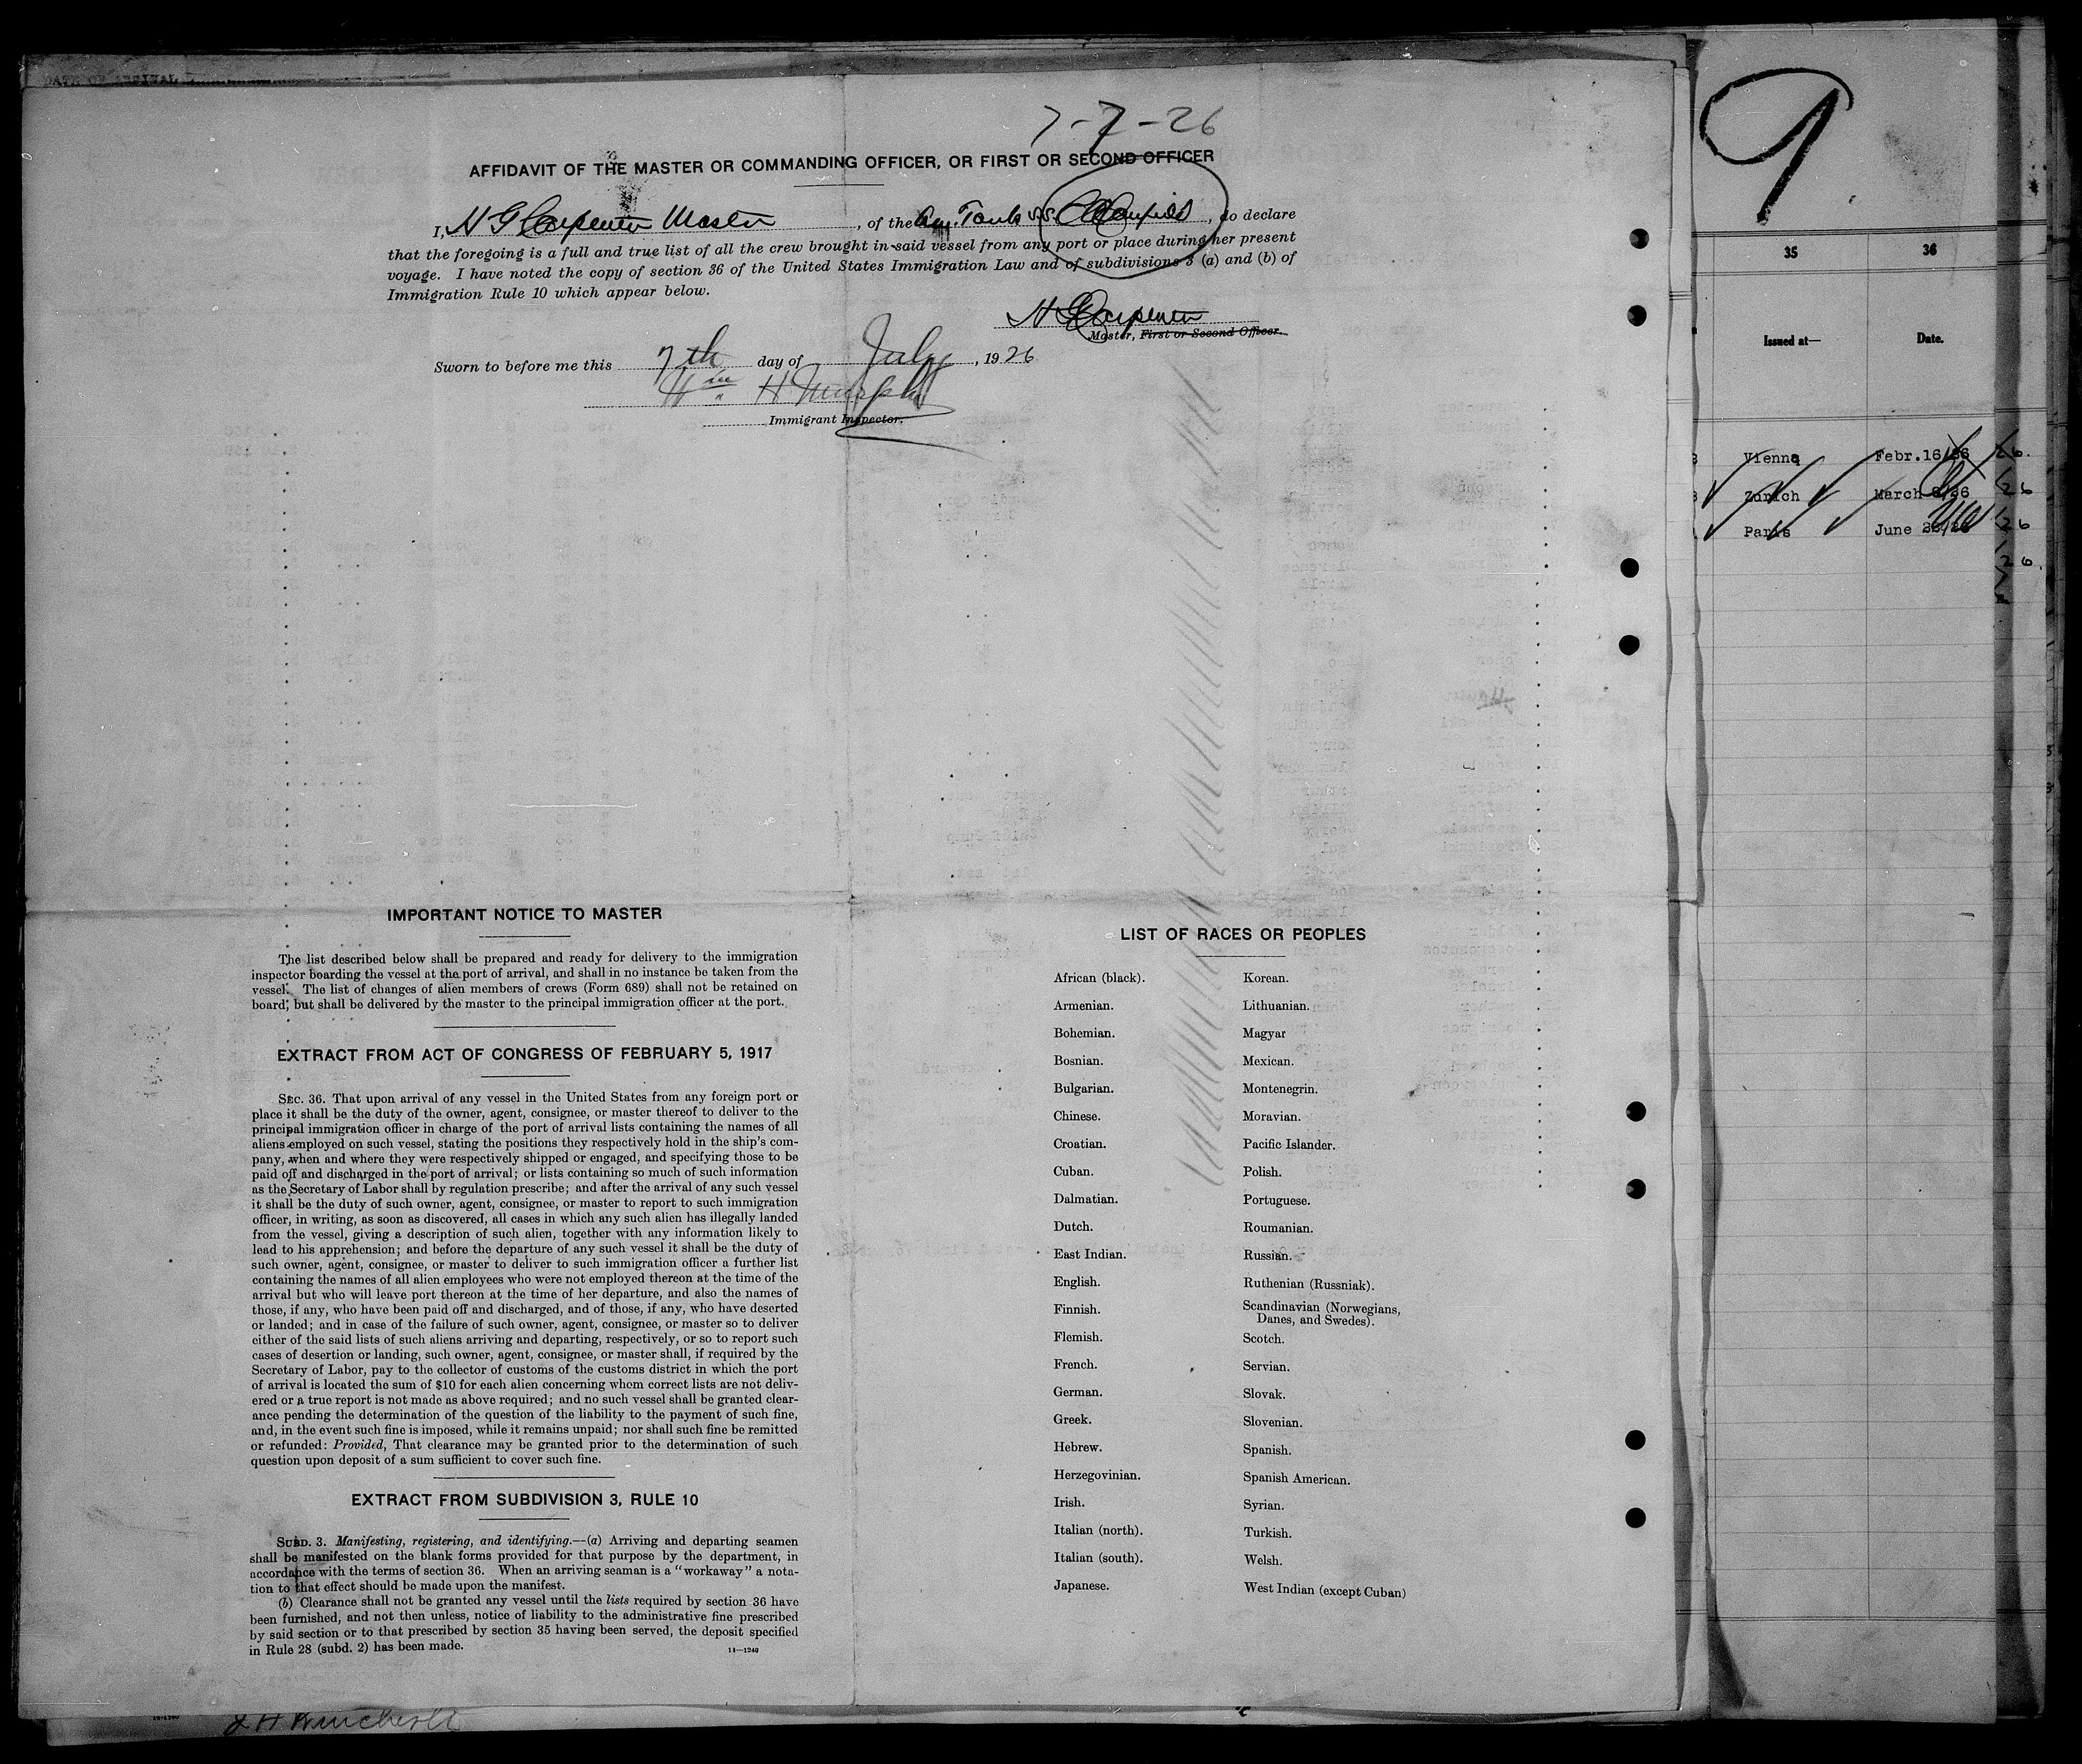 DATE OF ARRIVAL
7-7-26
AFFIDAVIT OF THE MASTER OR COMMANDING OFFICER, OR FIRST OR SECOND OFFICER
I, H G Carpenter Master, of the Am. Tank S.S., do declare
that the foregoing is a full and true list of all the crew brought in said vessel from any port or place during her present
voyage. I have noted the copy of section 36 of the United States Immigration Law and of subdivisions 3 (a) and (b) of
Immigration Rule 10 which appear below.
H G Carpenter
Master, First or Second Officer.
Sworn to before me this 7th day of July, 1926
Wm H Murphy
Immigrant Inspector.
IMPORTANT NOTICE TO MASTER
The list described below shall be prepared and ready for delivery to the immigration
inspector boarding the vessel at the port of arrival, and shall in no instance be taken from the
vessel. The list of changes of alien members of crews (Form 689) shall not be retained on
board, but shall be delivered by the master to the principal immigration officer at the port.
EXTRACT FROM ACT OF CONGRESS OF FEBRUARY 5, 1917
SEC. 36. That upon arrival of any vessel in the United States from any foreign port or
place it shall be the duty of the owner, agent, consignee, or master thereof to deliver to the
principal immigration officer in charge of the port of arrival lists containing the names of all
aliens employed on such vessel, stating the positions they respectively hold in the ship's com-
pany, when and where they were respectively shipped or engaged, and specifying those to be
paid off and discharged in the port of arrival; or lists containing so much of such information
as the Secretary of Labor shall by regulation prescribe; and after the arrival of any such vessel
it shall be the duty of such owner, agent, consignee, or master to report to such immigration
officer, in writing, as soon as discovered, all cases in which any such alien has illegally landed
from the vessel, giving a description of such alien, together with any information likely to
lead to his apprehension; and before the departure of any such vessel it shall be the duty of
such owner, agent, consignee, or master to deliver to such immigration officer a further list
containing the names of all alien employees who were not employed thereon at the time of the
arrival but who will leave port thereon at the time of her departure, and also the names of
those, if any, who have been paid off and discharged, and of those, if any, who have deserted
or landed; and in case of the failure of such owner, agent, consignee, or master so to deliver
either of the said lists of such aliens arriving and departing, respectively, or so to report such
cases of desertion or landing, such owner, agent, consignee, or master shall, if required by the
Secretary of Labor, pay to the collector of customs of the customs district in which the port
of arrival is located the sum of $10 for each alien concerning whom correct lists are not deliv-
ered or a true report is not made as above required; and no such vessel shall be granted clear-
ance pending the determination of the question of the liability to the payment of such fine,
and, in the event such fine is imposed, while it remains unpaid; nor shall such fine be remitted
or refunded: Provided, That clearance may be granted prior to the determination of such
question upon deposit of a sum sufficient to cover such fine.
EXTRACT FROM SUBDIVISION 3, RULE 10
SUBD. 3. Manifesting, registering, and identifying.—(a) Arriving and departing seamen
shall be manifested on the blank forms provided for that purpose by the department, in
accordance with the terms of section 36. When an arriving seaman is a "workaway" a nota-
tion to that effect should be made upon the manifest.
(b) Clearance shall not be granted any vessel until the lists required by section 36 have
been furnished, and not then unless, notice of liability to the administrative fine prescribed
by said section or to that prescribed by section 35 having been served, the deposit specified
in Rule 28 (subd. 2) has been made.
14—1240
LIST OF RACES OR PEOPLES
African (black). Korean.
Armenian. Lithuanian.
Bohemian. Magyar
Bosnian. Mexican.
Bulgarian. Montenegrin.
Chinese. Moravian.
Croatian. Pacific Islander.
Cuban. Polish.
Dalmatian. Portuguese.
Dutch. Roumanian.
East Indian. Russian.
English. Ruthenian (Russniak).
Finnish. Scandinavian (Norwegians,
Danes, and Swedes).
Flemish. Scotch.
French. Servian.
German. Slovak.
Greek. Slovenian.
Hebrew. Spanish.
Herzegovinian. Spanish American.
Irish. Syrian.
Italian (north). Turkish.
Italian (south). Welsh.
Japanese. West Indian (except Cuban)
9
35 36
Issued at— Date.
Vienna Febr.16/26 26.
Zurich March 26
Paris June 26
26.